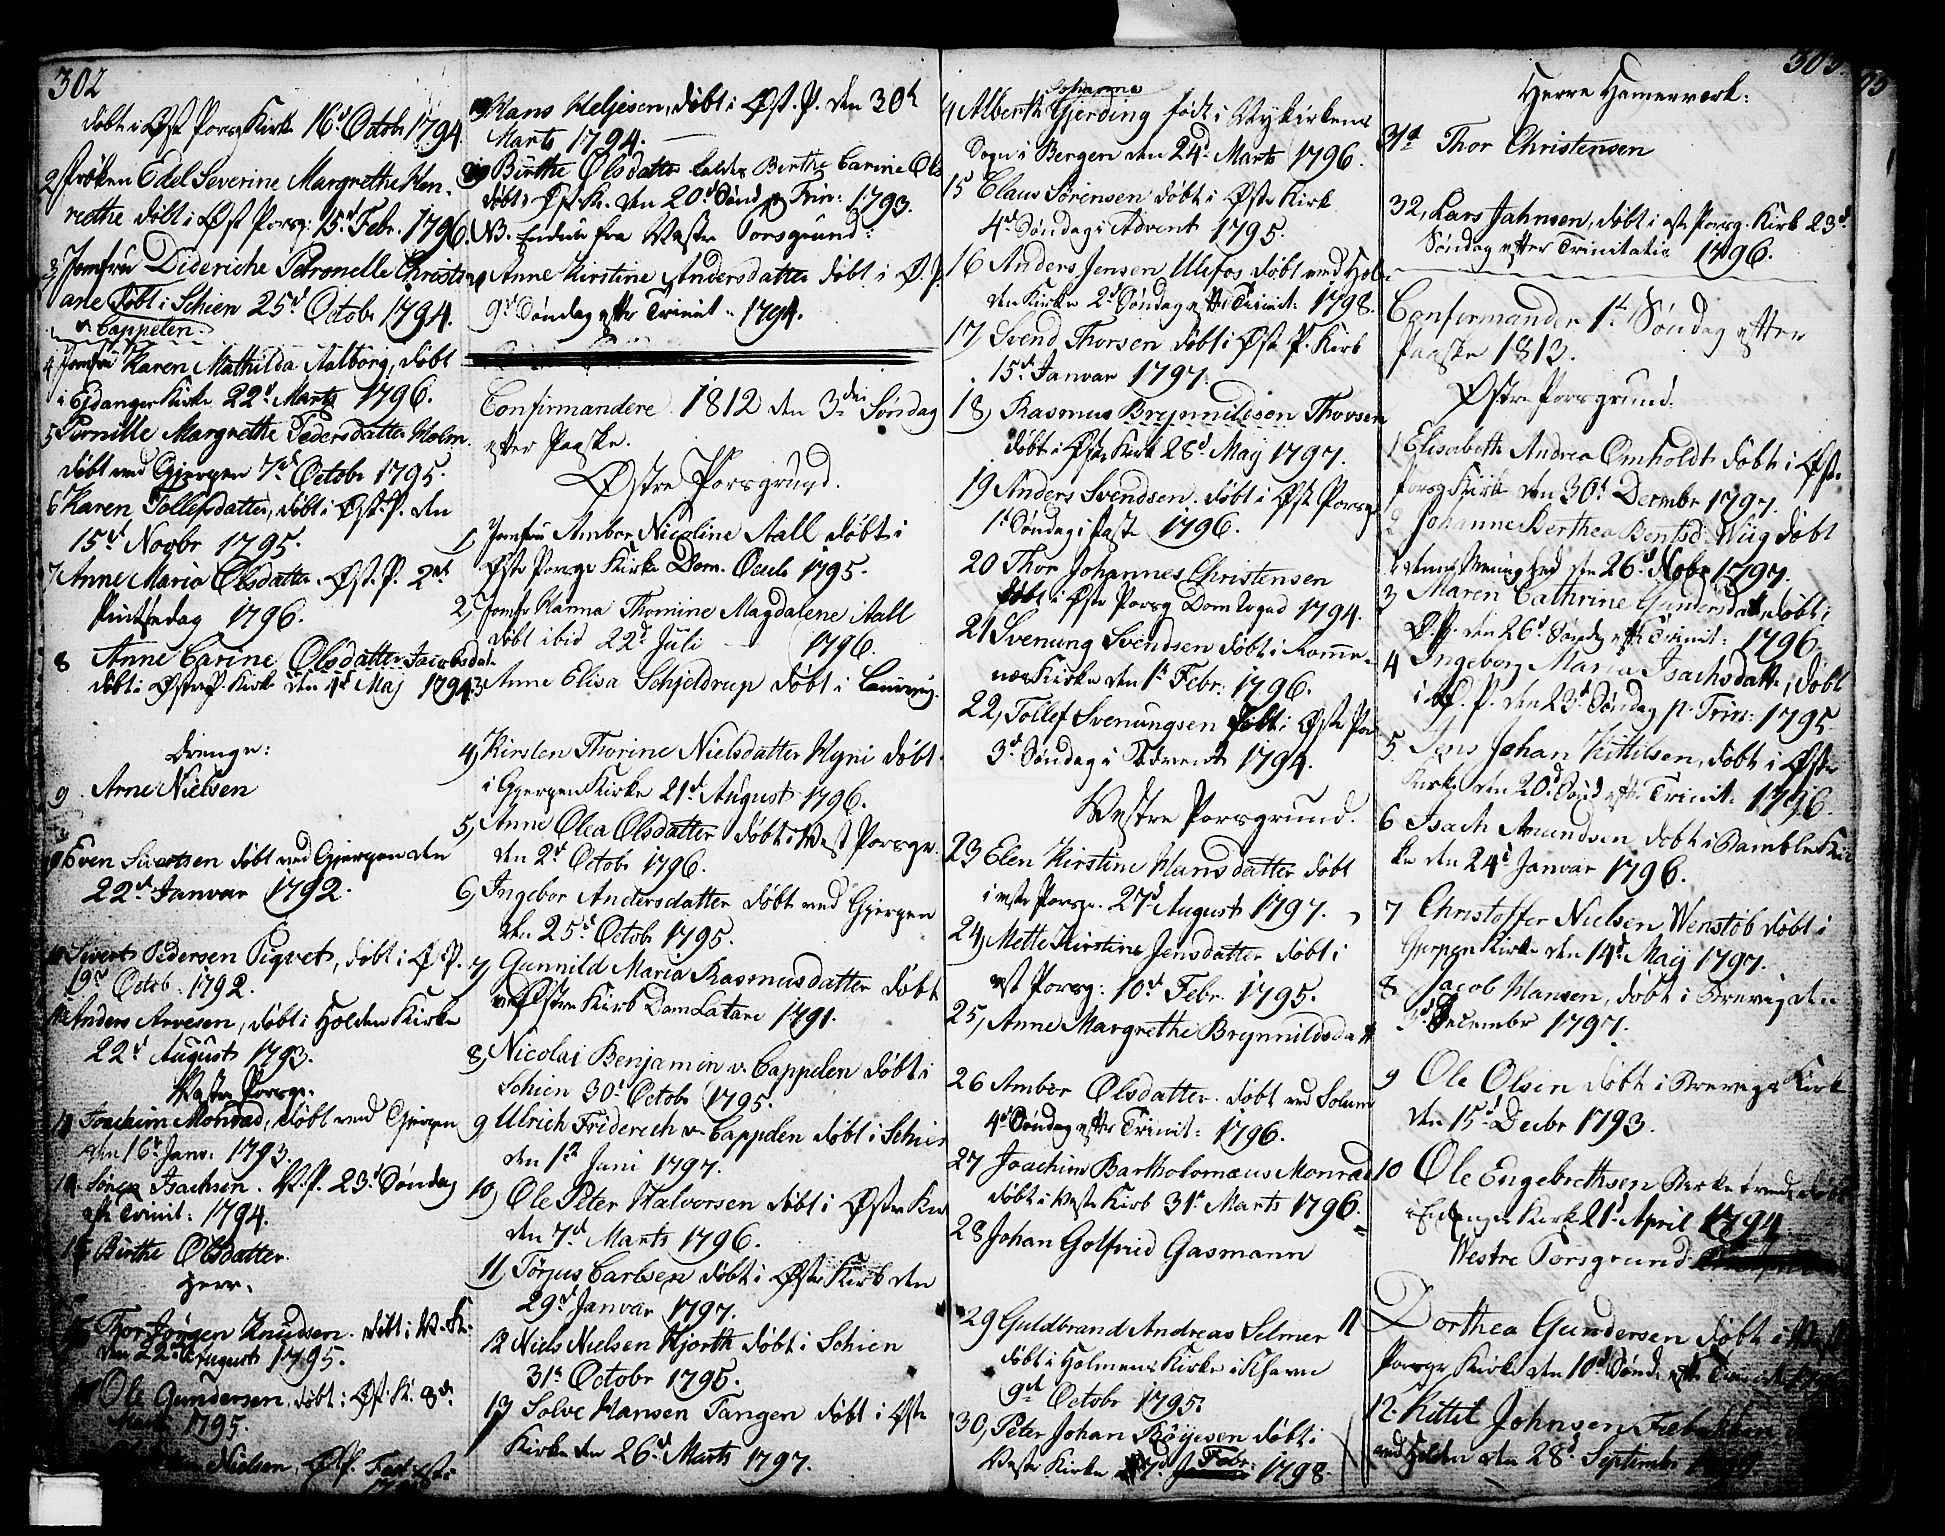 302
døbt i Øst Porsg Kirke 16d Octob 1794
2 Frøken Edel Severine Margrethe Hen-
riethe døbt i Øst Porsg. 15d Febr. 1796.
3, Jomfru Dideriche Petronelle Christi
ane døbt i Schien 25d Octobr 1794.
v. Cappelen.
4, Jomfru Karen Mathilda Aalborg, døbt
i Eidanger Kirke 22d Marts 1796.
5, Pernille Margrethe Pedersdatter Holm.
døbt ved Gjerpen 7d Octobr 1795.
6 Karen Tollefsdatter, døbt i Øst. P. den
15d Novbr 1795.
7 Anne Maria Olsdatter. Øst. P. 2den
Pintsedag 1796.
8 Anne Carine Olsdatter Jacobsdat
døbt i Østre P. Kirke den 4d Maj 1794
Drenge:
9. Arne Nielsen
Even Sivertsen døbt ved Gjerpen den
22d Januar 1792.
Sivert Pedersen Pigvet, døbt i Ø. P.
19d Octob. 1792.
Anders Arvesen, døbt i Holden Kirke
22d August 1793.
Vestre Porsgr.
Joachim Monrad, døbt ved Gjerpen
den 16d Janv. 1793.
14 Søren Isachsen. V. P. 23d Søndag
eft. Trinit: 1794.
15 Birthe Olsdatter
Herr.
Thor Jørgen Knudsen. døbt i V. K.
den 22d August 1795.
Ole Gundersen døbt i Øst. K. 8d
1795.
Nielsen, Ø. P.
Hans Meljesen, døbt i Øst. P. den 30d
Marts 1794.
Birthe Olsdatter kaldes Birthe Carine Ols
døbt i Øst K. den 20d Sønd p Trin: 1793.
NB. Endnu fra Vestre Porsgrund:
Anne Kirstine Andersdatter døbt i Ø. P.
9d Søndag efter Trinit. 1794.
Confirmandere 1812 den 3die Søndag
efter Paaske.
Østre Porsgrund.
1, Jomfru Amber Nicoline Aall døbt i
Østre Porsgr Kirke Dom. Oculi 1795.
2, Jomfr Hanna Thomine Magdalene Aall
døbt ibid 22d Juli 1796.
3 Anne Elisa Schjeldrup døbt i Laurvig.
4, Kirsten Thorine Nielsdatter Myni døbt
i Gjerpen Kirke 21d August 1796.
5, Anne Olea Olsdatter døbt i Vest Porsgr.
den 2d Octobr 1796.
6, Ingebor Andersdatter døbt ved Gjerpen
den 25d Octobr 1795.
7, Gunnild Maria Rasmusdatter døbt
ved Østre Kirk Dom Lætare 1791.
8, Nicolai Benjamin v. Cappelen døbt i
Schien 30d Octobr 1795.
9 Ulrich Friderich v. Cappelen døbt i Schien
den 1d Juni 1797.
10, Ole Peter Halvorsen døbt i Østre Kir
den 7d Marts 1796.
11, Torjus Carlsen døbt i Østre Kirk den
29d Januar 1797.
12 Niels Nielsen Hjorth døbt i Schien
31d Octobr 1795.
13 Solve Hansen Tangen døbt i Øst
Kirke den 26d Marts 1797.
Johanne
Alberth Gjerding født i Nykirkens
Sogn i Bergen den 24d Marts 1796.
15 Claus Sørensen døbt i Østre Kirk
4d Søndag i Advent 1795.
16 Anders Jensen Ulefos døbt ved Hol-
den Kirke 2d Søndag efter Trinit: 1798.
17, Svend Thorsen døbt i Øst P. Kirk
15d Januar 1797.
18, Rasmus Brynnildsen Thorsen
døbt i Østre Kirk 28d Maij 1797.
19 Anders Svendsen. døbt i Øst Porsgr
1d Søndag i Faste 1796.
20 Thor Johannes Christensen
døbt i Østre Porsg Dom 1794.
21 Svenung Svendsen døbt i Romme-
næs Kirke den 1d Febr: 1796.
22, Tollef Svenungsen døbt i Østre Por
3d Søndag i Advent 1794.
Vestre Porsgrund.
23 Elen Kirstine Hansdatter døbt
i vestre Porsgr. 27d August 1797.
24, Mette Kirstine Jensdatter døbt i
vest Porsg: 10d Febr. 1795.
25, Anne Margrethe Brynnildsdatt
26 Amber Olsdatter. døbt ved Solum
4d Søndag efter Trinit: 1796.
27 Joachim Bartholomæus Monrad
døbt i Vestre Kirk 31d Marts 1796.
28 Johan Gotfried Gasmann
29 Guldbrand Andreas Selmer
døbt i Holmens Kirke i Khavn
9d Octobr 1795.
30, Peter Johan Böyesen døbt i
Vestre Kirke 7d Febr: 1798.
303
Herre Hamerværk:
31d Thor Christensen
32, Lars Jahnsen, døbt i øst Porsg. Kirk 23d
Søndag efter Trinitatis 1796.
Confirmander 1d Søndag efter
Paaske 1813.
Østre Porsgrund.
1 Elisabeth Andrea Omholdt døbt i Østre
Porsg Kirk den 30d Decembr 1797.
2 Johanne Berthea Bentsd: Wiig døbt
26d Nobr 1797.
3 Maren Cathrine Gundersdatt, døbt i
Ø. P. den 26d Søndg efter Trinit: 1796.
4 Ingeborg Maria Isachsdatter, døbt
i Ø. P. den 23d Søndag p. Trin: 1795
5. Jens Johan Kittilsen, døbt i Østre
Kirke den 20d Sønd efter Trinit: 1796.
6 Isach Amundsen døbt i Bamble Kir
ke den 24d Januar 1796.
7 Christoffer Nielsen Wenstøb døbt i
Gjerpen Kirke den 14d Maij 1797.
8 Jacob Hansen, døbt i Brevig den
December 1797.
9 Ole Olsen døbt i Brevigs Kirk
den 15d Decbr 1793.
10 Ole Engebrethsen døbt
i Eidanger Kirk 21d April 1794
Westre Porsgrund
Dorthea Gundersen døbt i Vest
Porsgr Kirke den 10d Sønd: eft Trinit
12. Kittil Johnsen
ved Holden den 28d Septembr